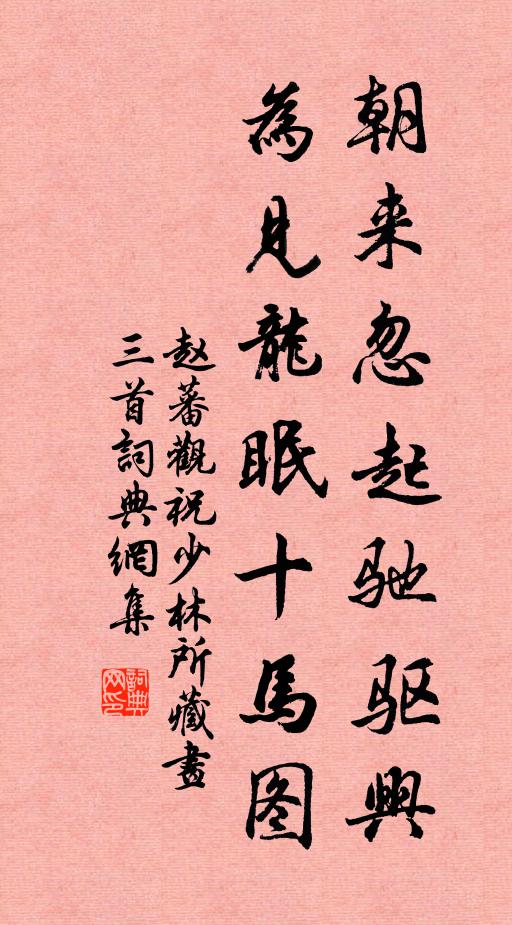 朝来忽起驰驱興
為見龍眠十馬图
赵蕃觀祝少林所藏畫
三首詞典網集
詞典
网印